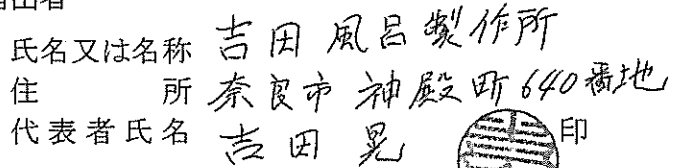 氏名又は名称 吉田風呂製作所
住所 奈良市神殿町640番地
代表者氏名 吉田晃 印